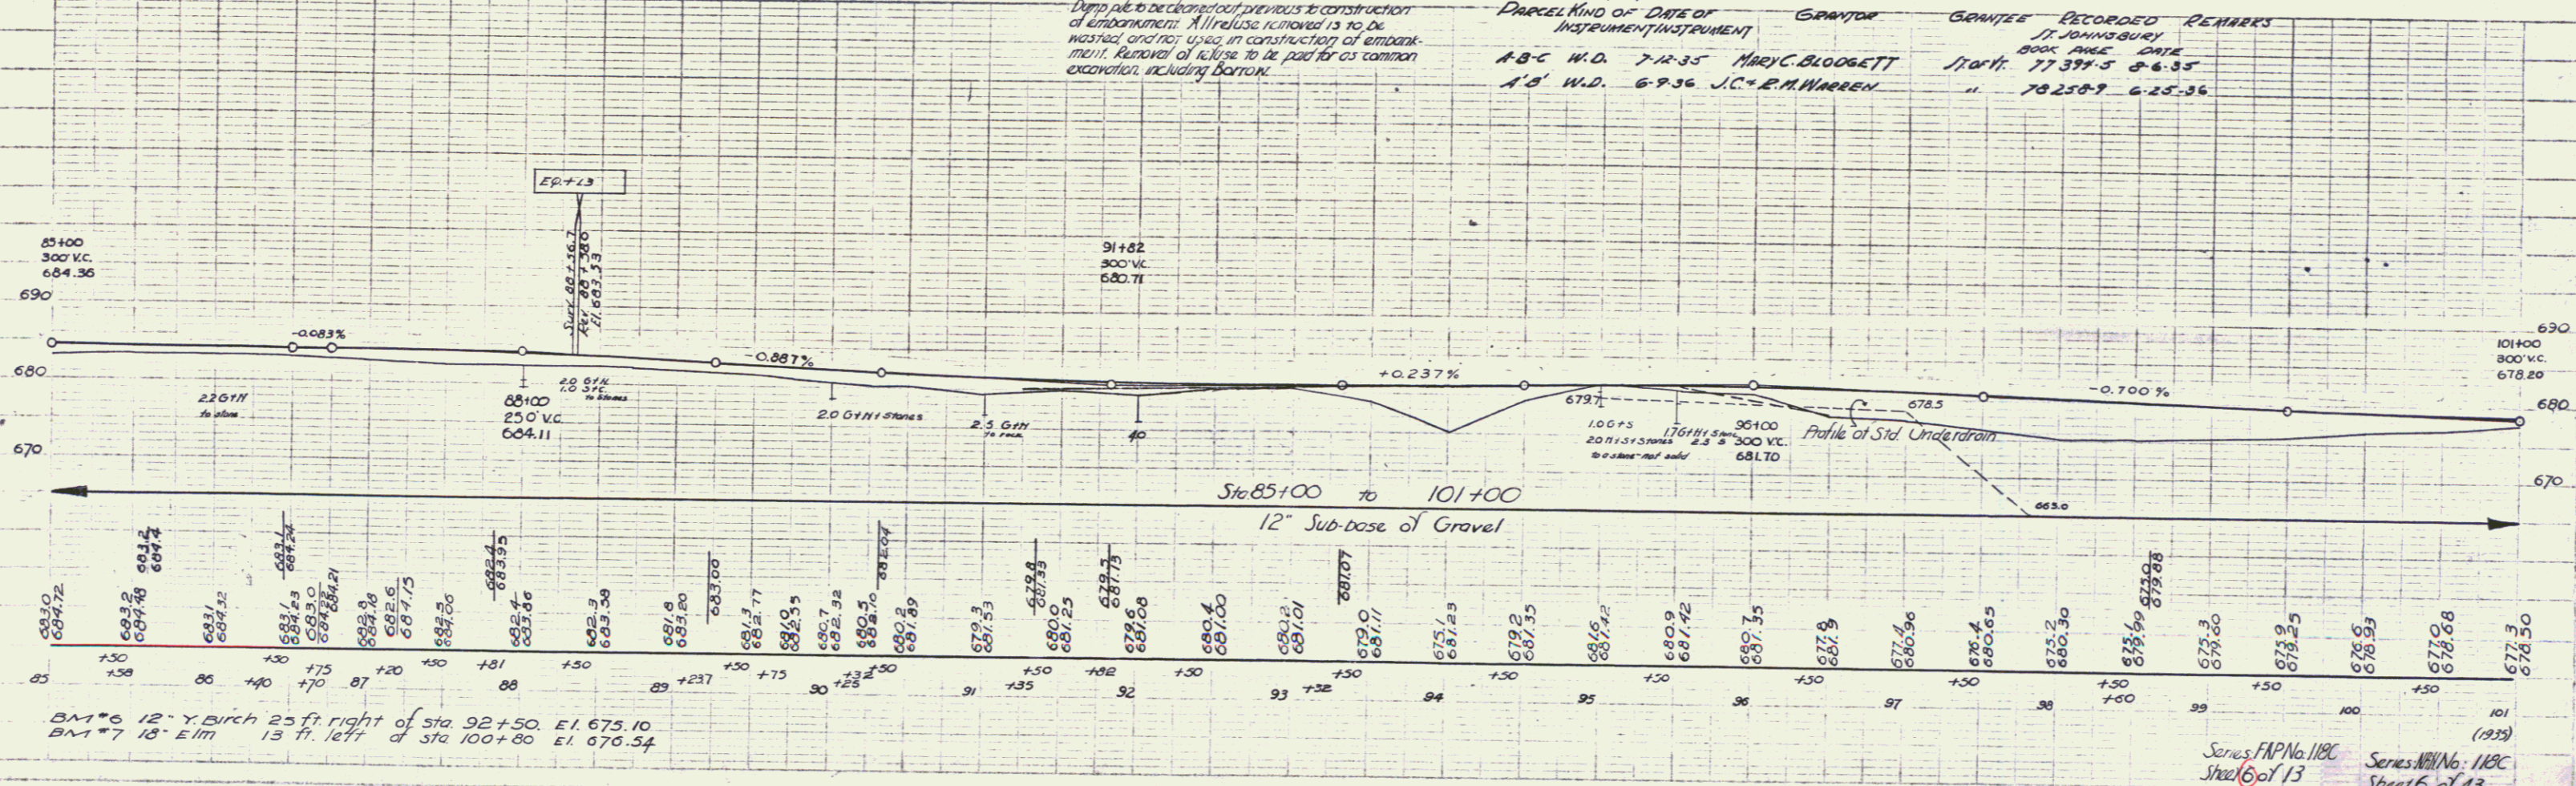 Dump pile to be cleaned out previous to construction
of embankment. All refuse removed is to be
wasted, and not used in construction of embank-
ment. Removal of refuse to be paid for as common
excavation, including Borrow.
PARCEL KIND OF DATE OF GRANTOR GRANTEE RECORDED REMARKS
INSTRUMENT INSTRUMENT ST. JOHNSBURY
BOOK PAGE DATE
A-B-C W.D. 7-12-35 MARY C. BLODGETT ST OF VT. 77 394-5 8-6-35
A'B' W.D. 6-9-36 J.C. + R.M. WARREN " 78 258-9 6-25-36
EQ.+13
Surv. 88+56.7
Rev. 88+58.0
El. 683.53
85+00
300' V.C.
684.36
91+82
300' V.C.
680.71
101+00
300' V.C.
678.20
690
680
670
690
680
670
-0.083%
-0.887%
+0.237%
-0.700%
2.2 G+H
to stone
2.0 G+H
1.0 S+C
to stones
88+00
250' V.C.
684.11
2.0 G+H+Stones
2.5 G+H
to rock
40
679.7
1.0 G+S
2.0 H+S+Stones
to a stone-not solid
1.7 G+H+Stone
2.3 S
96+00
300' V.C.
681.70
678.5
Profile of Std. Underdrain
665.0
Sta 85+00 to 101+00
12" Sub-base of Gravel
683.0 684.72
683.2 684.48
683.2 684.4
683.1 684.32
683.1 684.24
683.1 684.23
683.0 684.22
684.21
682.8 684.18
682.6 684.15
682.5 684.06
682.4 683.95
682.4 683.86
682.3 683.58
681.8 683.20
683.00
681.3 682.77
681.0 682.55
680.7 682.32
680.5 682.10
682.04
680.2 681.89
679.3 681.53
679.8 681.33
680.0 681.25
679.5 681.13
679.6 681.08
680.4 681.00
680.2 681.01
681.07
679.0 681.11
675.1 681.23
679.2 681.35
681.6 681.42
680.9 681.42
680.7 681.35
677.8 681.9
677.4 680.96
676.4 680.65
675.2 680.30
675.1 679.99
675.0 679.88
675.3 679.60
675.9 679.25
676.6 678.93
677.0 678.68
677.3 678.50
85 +50 +58 86 +40 +50 +70 +75 87 +20 +50 +81 88 +50 89 +23.7 +50 +75 90 +25 +32 +50 91 +35 +50 +82 92 +50 93 +32 +50 94 +50 95 +50 96 +50 97 +50 98 +50 +60 99 +50 100 +50 101
BM #6 12" Y. Birch 25 ft. right of sta. 92+50. El. 675.10
BM #7 18" Elm 13 ft. left of sta 100+80 El. 676.54
(1935)
Series FAP No. 118C
Sheet 6 of 13
Series NRH No. 118C
Sheet 6 of 13